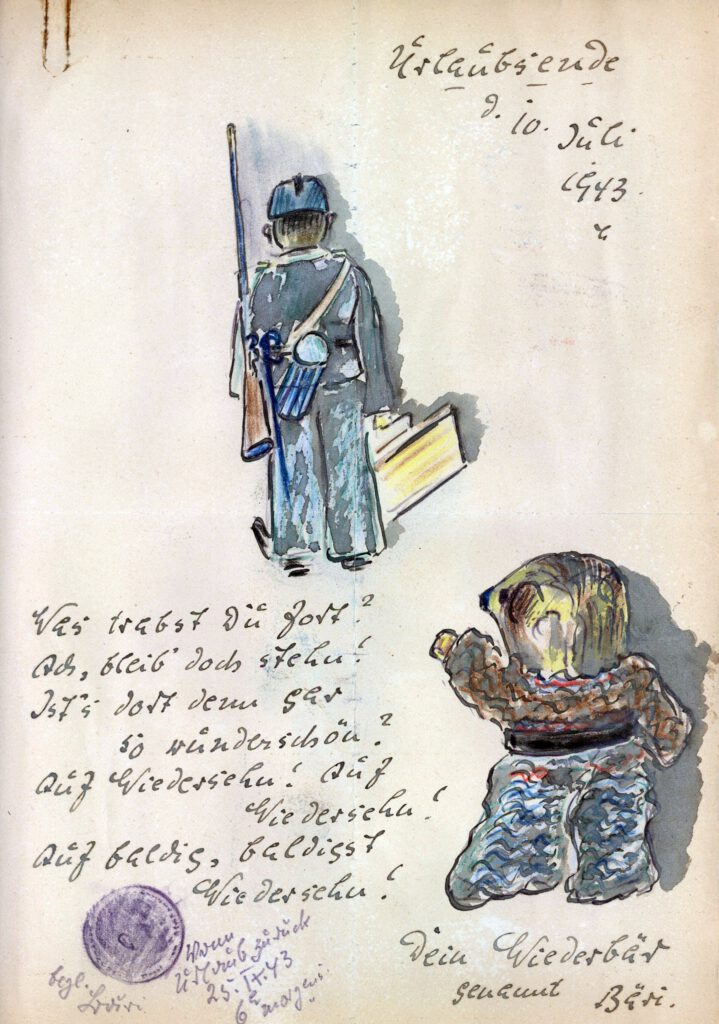 Urlaubsende
d. 10. Juli
1943.
Was trabst Du fort?
Ach, bleib' doch stehn!
Ist's dort denn gar
so wunderschön?
Auf Wiedersehn! Auf
Wiedersehn!
Auf baldig, baldigst
Wiedersehn!
Dein Wiederbär
genannt Bäri.
Vom
Urlaub zurück
25. IX. 43
6h morgens.
begl.